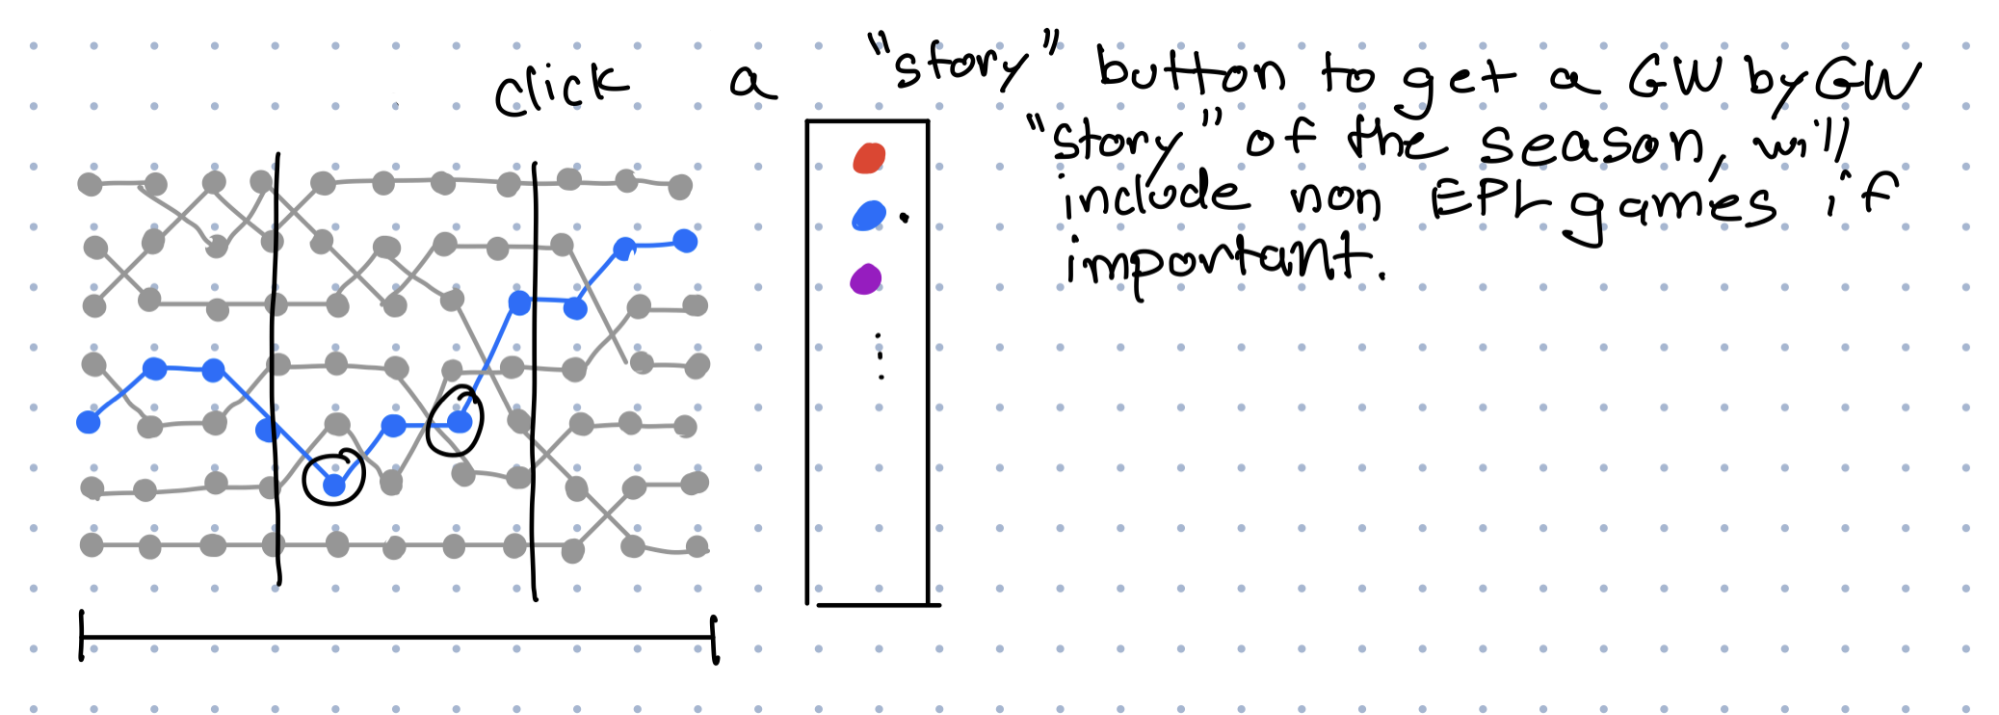 click a "story" button to get a GW by GW
"story" of the season, will
include non EPL games if
important.